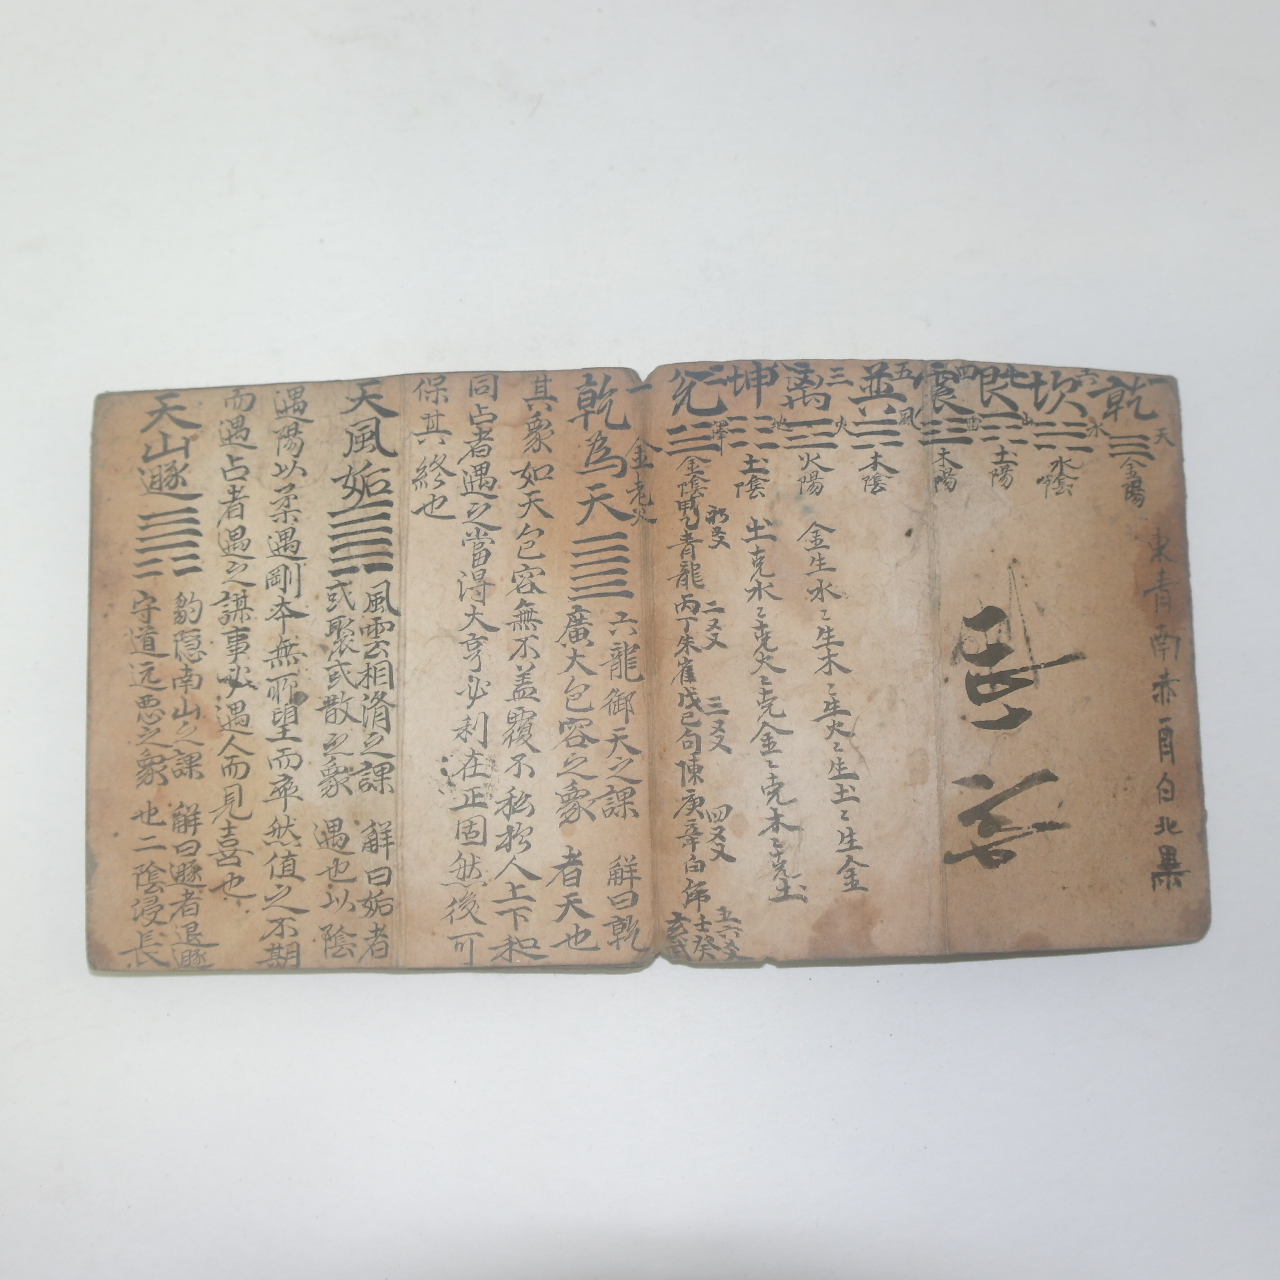 乾 坎 艮 震 並 离 坤 兌
天 水 山 雷 風 火 地 澤
金陽 水陰 土陽 木陽 木陰 火陽 土陰 金陰
東青南赤酉白北黒
金生水〻生木〻生火〻生土〻生金
土克水〻克火〻克金〻克木〻克土
甲乙青龍 丙丁朱雀 戊己句陳 庚辛白 壬癸玄武
初爻 二爻 三爻 四爻 五六爻
乾為天 六龍御天之課 解曰乾
廣大包容之象 者天也
其象如天包容無不盖覆不私於人上下和
同占者遇之當得大亨必利在正固然後可
保其終也
天風姤 風雲相済之課 解曰姤者
或聚或散之象 遇也以陰
遇陽以柔遇剛本無所望而卒然值之不期
而遇占者遇之謀事必遇人而見喜也
天山遯 豹隠南山之課 解曰遯者退遯
守道远恶之象 也二陰浸長